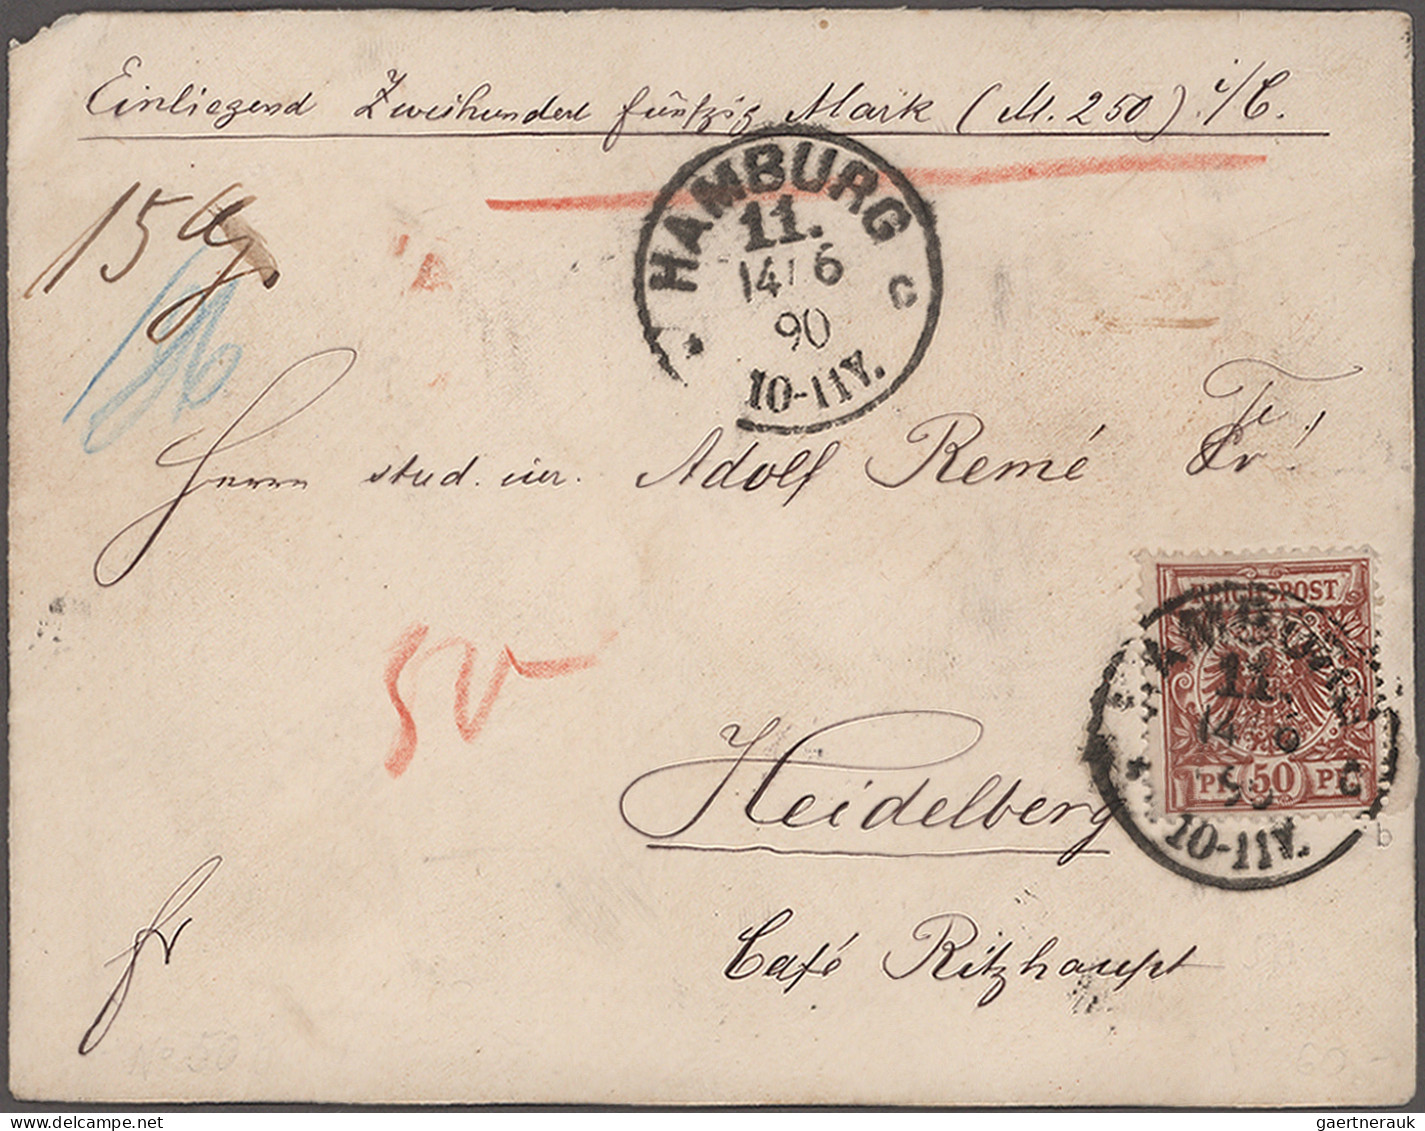 Einliegend Zweihundert fünfzig Mark (M. 250) i/C.
15 g.
HAMBURG
11.
14 6
90
10-11V.
c
Herrn stud. iur. Adolf Remé
Fr
50
REICHSPOST
PF 50 PF
11.
14 6
90
10-11V.
c
Heidelberg
b
Café Ritzhaupt
fr
gaertnerauk